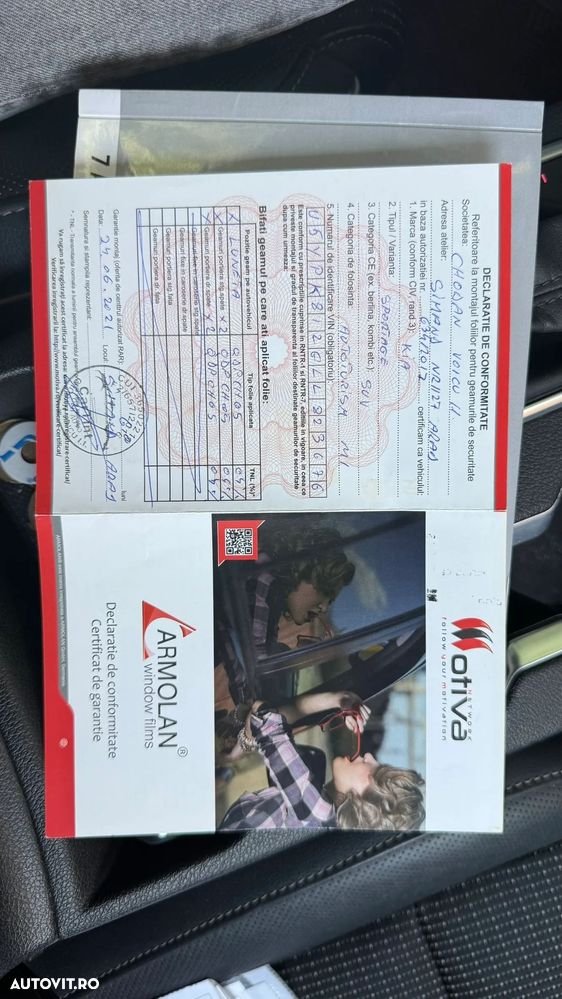 DECLARATIE DE CONFORMITATE
Referitoare la montajul foliilor pentru geamurile de securitate
Societatea: CHODAN VOICU II
Adresa atelier: SIMAND NR 127 ARAD
in baza autorizatiei nr. certificam ca vehiculul:
1. Marca (conform CIV, rand.3): KIA
2. Tipul / Varianta: SPORTAGE
3. Categoria CE (ex. berlina, kombi etc.): SUV
4. Categoria de folosinta: AUTOTURISM M1
5. Numarul de identificare VIN (obligatoriu)
Este conform cu prescriptiile cuprinse in RNTR-1 si RNTR-7, editiile in vigoare, in ceea ce
priveste montajul si gradul de transparenta al foliilor destinate geamurilor de securitate
dupa cum urmeaza:
Bifati geamul pe care ati aplicat folie:
Pozitie geam pe autovehicul Tip folie aplicata TNL (%)*
X LUNETA
X Geamuri portiera stg.spate x2
X Geamuri portiera dr.spate x2
Geamuri fixe in caroserie stg.spate
Geamuri fixe in caroserie dr.spate
Geamuri portiera stg.fata
Geamuri portiera dr. fata
Garantie montaj (oferita de centrul autorizat RAR): luni
Data: 24.06.2021 Locul:
Semnatura si stampila reprezentant:
* - TNL - Transmitanta normala a luminii pentru ansamblul geam
Motiva
NETWORK
follow your motivation
ARMOLAN®
window films
Declaratie de conformitate
Certificat de garantie
AUTOVIT.RO